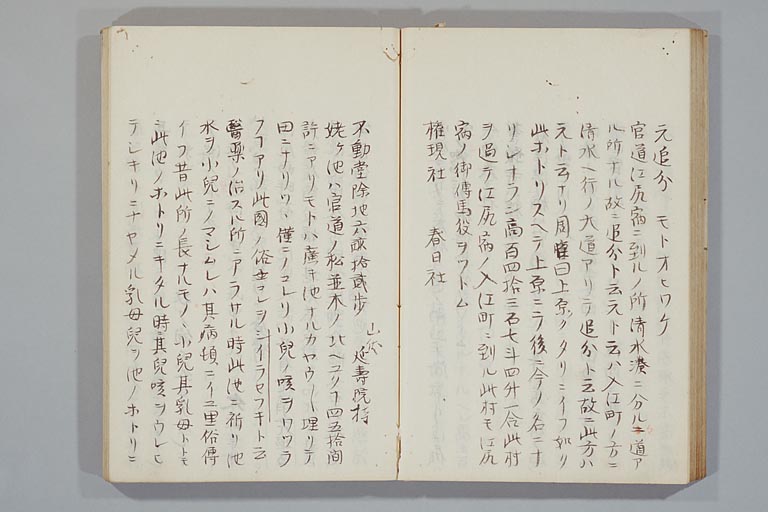 元追分　モトオヒワケ
官道江尻宿ニ到ルノ所清水湊ニ分ルヽ道ア
ル所ナル故ニ追分ト云元ト云ハ入江町ノ方ニ
清水ヘ行ノ大道アリテ追分ト云故ニ此方ハ
元ト云ナリ周曰上原ノクタリニイフ如ク
此ホトリスヘテ上原ニテ後ニ今ノ名ニナ
リシナラン高百四拾三石七斗四升一合此村
ヲ過テ江尻宿ノ入江町ニ到ル此村モ江尻
宿ノ御傳馬役ヲツトム
権現社　春日社
不動堂除地六畝拾貳歩　延壽院持
姥ヶ池ハ官道ノ松並木ノ北ヘ入リテ四五拾間
許ニアリモトハ廣キ池ナルカヤウヤク埋リテ
田ニナリワツ僅ニノコレリ小兒ノ咳ヲワツラ
フコアリ此國ノ俗コレヲシイラセフキト云
醫藥ノ治スル所ニアラサル時此池ニ祈リ池
水ヲ小兒ニノマシムレハ其病頓ニイユ里俗傳
イフ昔此所ノ長ナルモノヽ小兒其乳母トトモ
ニ此池ノホトリニキタル時其兒咳ヲウレヒ
テシキリニナヤメル乳母兒ヲ池ノホトリニ